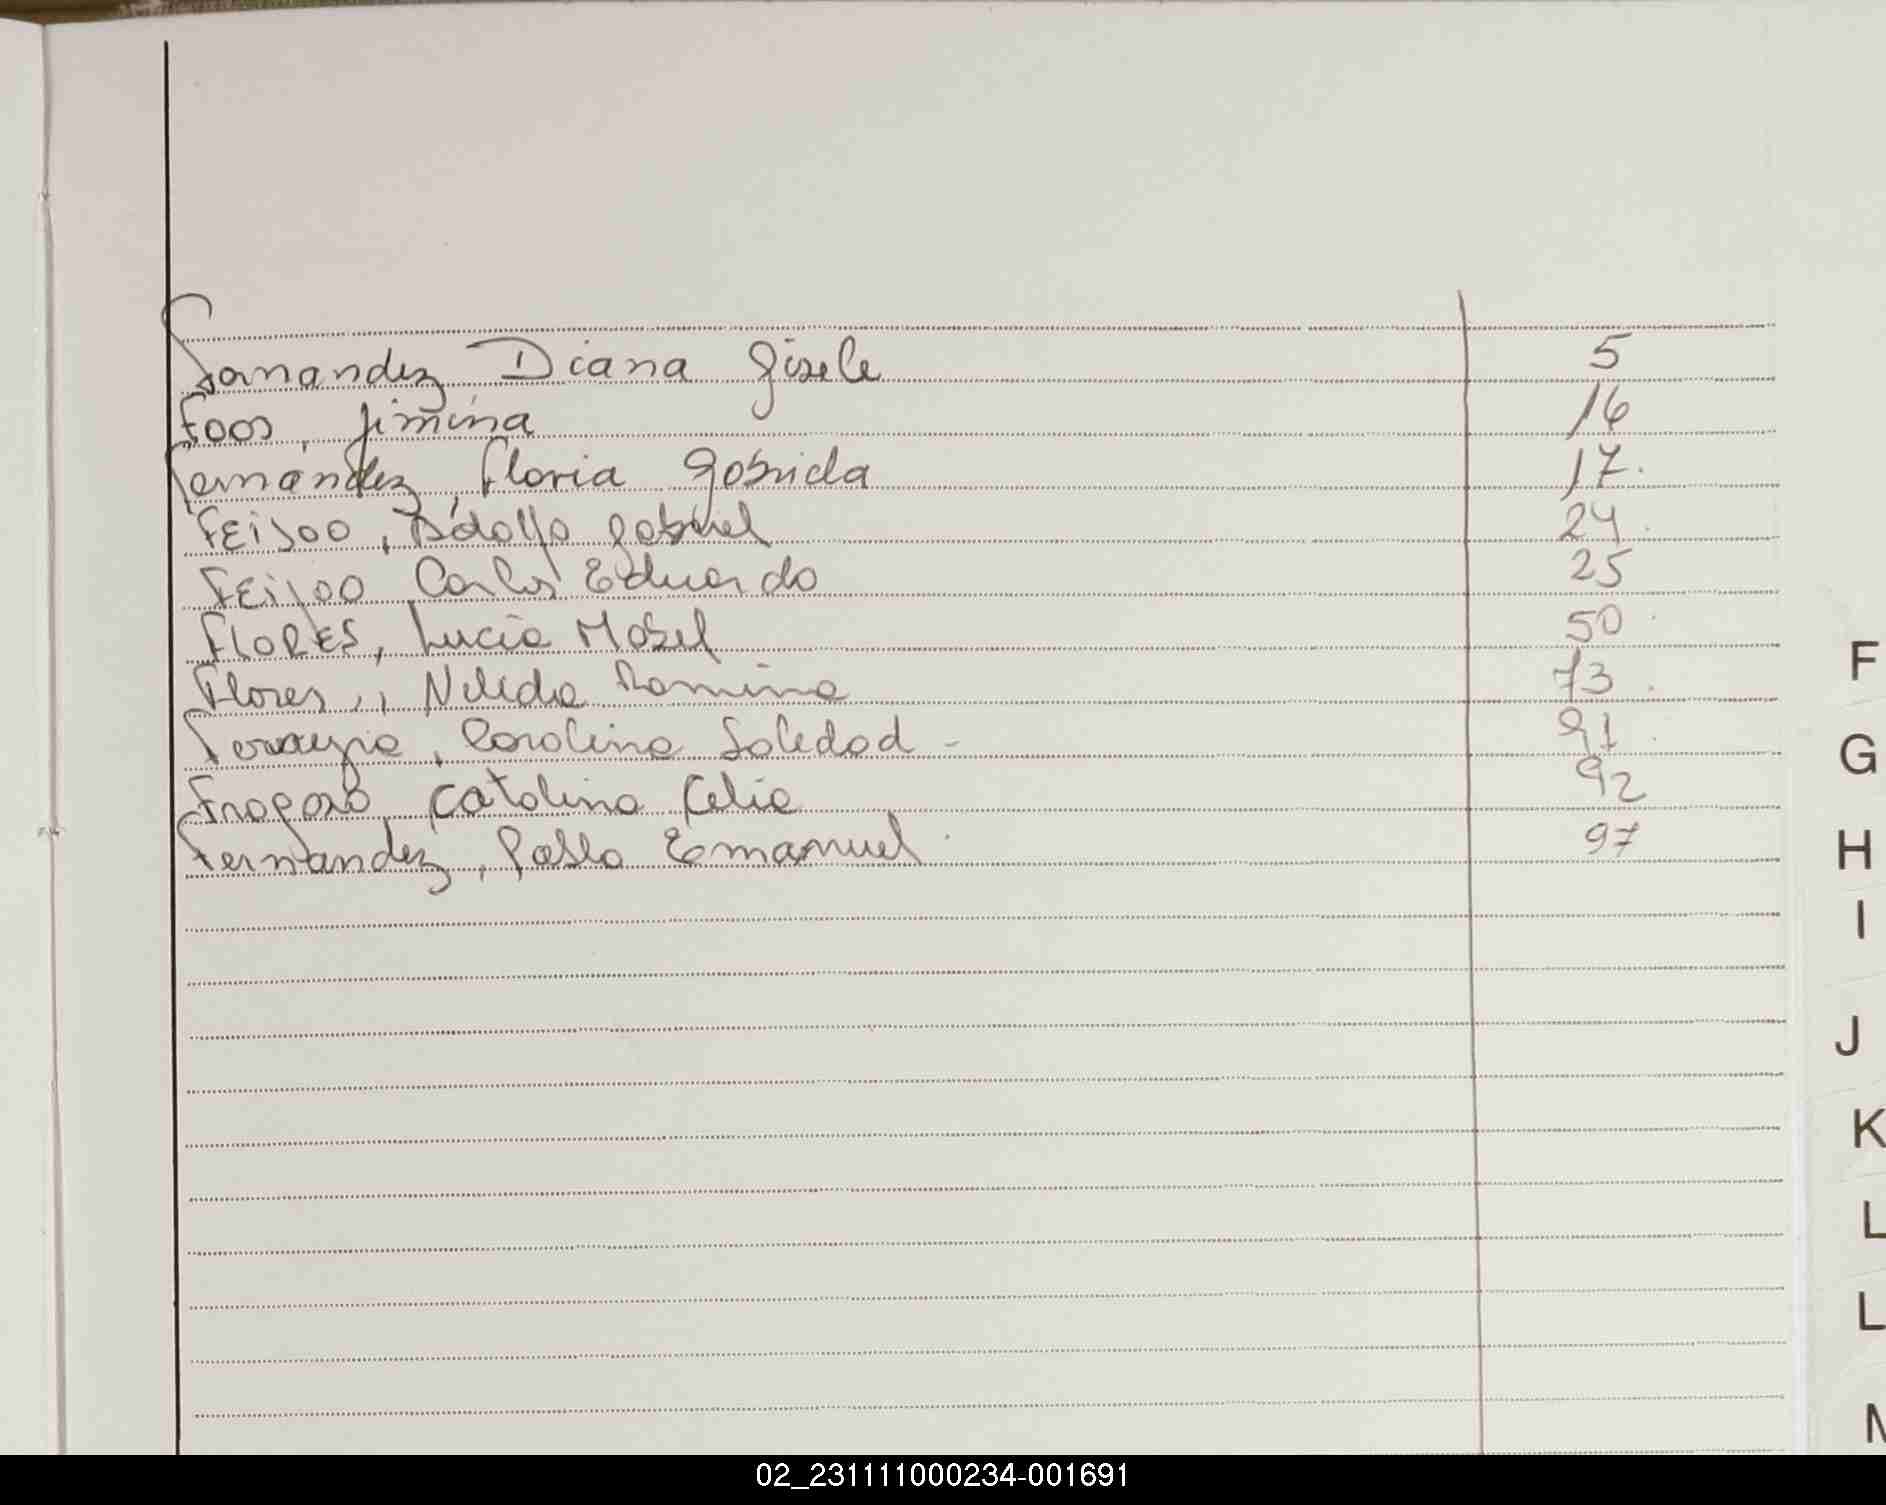 Fernandez Diana Gisele 5
Foos, Jimina 16
Fernández, Floria Gabriela 17.
FEiJoo, Adolfo Gabriel 24.
FEiJoo Carlos Eduardo 25
FLORES, Lucia Mabel 50.
Flores,, Nelida Romina 73.
Carolina Soledad - 91.
Catalina Celia 92
Fernandez, Pablo Emanuel. 97
F
G
H
I
J
K
L
L
M
02_231111000234-001691